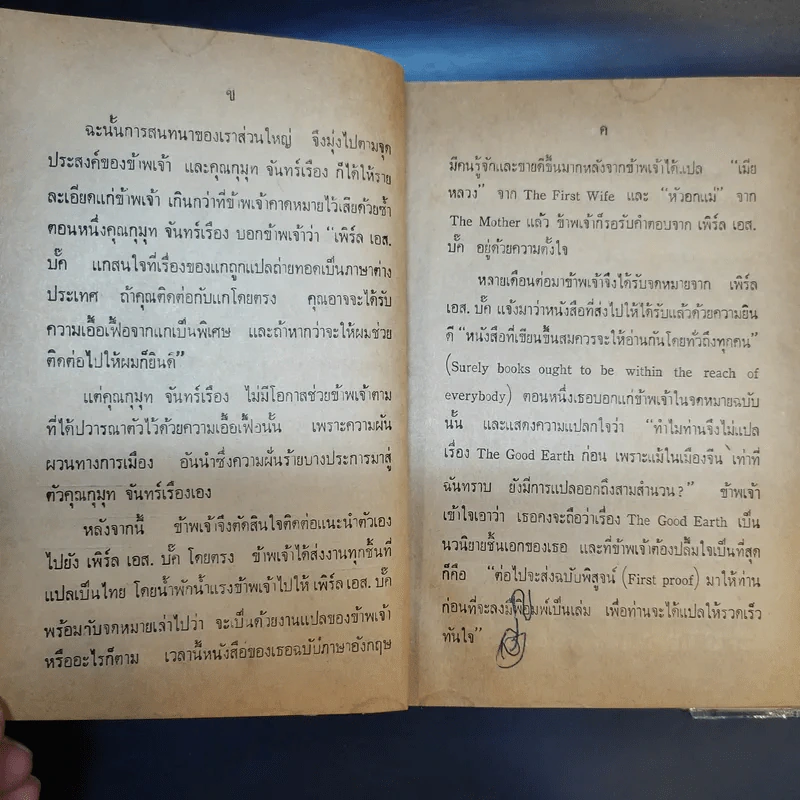 ข
ฉะนั้นการสนทนาของเราส่วนใหญ่ จึงมุ่งไปตามจุด
ประสงค์ของข้าพเจ้า และคุณกุมุท จันทร์เรือง ก็ได้ให้ราย
ละเอียดแก่ข้าพเจ้า เกินกว่าที่ข้าพเจ้าคาดหมายไว้เสียด้วยซ้ำ
ตอนหนึ่งคุณกุมุท จันทร์เรือง บอกข้าพเจ้าว่า “เพิร์ล เอส.
บั๊ค แกสนใจที่เรื่องของแกถูกแปลถ่ายทอดเป็นภาษาต่าง
ประเทศ ถ้าคุณติดต่อกับแกโดยตรง คุณอาจจะได้รับ
ความเอื้อเฟื้อจากแกเป็นพิเศษ และถ้าหากว่าจะให้ผมช่วย
ติดต่อไปให้ผมก็ยินดี”
แต่คุณกุมุท จันทร์เรือง ไม่มีโอกาสช่วยข้าพเจ้าตาม
ที่ได้ปวารณาตัวไว้ด้วยความเอื้อเฟื้อนั้น เพราะความผัน
ผวนทางการเมือง อันนำซึ่งความผันร้ายบางประการมาสู่
ตัวคุณกุมุท จันทร์เรืองเอง
หลังจากนี้ ข้าพเจ้าจึงตัดสินใจติดต่อแนะนำตัวเอง
ไปยัง เพิร์ล เอส. บั๊ค โดยตรง ข้าพเจ้าได้ส่งงานทุกชิ้นที่
แปลเป็นไทย โดยน้ำพักน้ำแรงข้าพเจ้าไปให้ เพิร์ล เอส. บั๊ค
พร้อมกับจดหมายเล่าไปว่า จะเป็นด้วยงานแปลของข้าพเจ้า
หรืออะไรก็ตาม เวลานี้หนังสือของเธอฉบับภาษาอังกฤษ
ค
มีคนรู้จักและขายดีขึ้นมากหลังจากข้าพเจ้าได้แปล “เมีย
หลวง” จาก The First Wife และ “หัวอกแม่” จาก
The Mother แล้ว ข้าพเจ้าก็รอรับคำตอบจาก เพิร์ล เอส.
บั๊ค อยู่ด้วยความตั้งใจ
หลายเดือนต่อมาข้าพเจ้าจึงได้รับจดหมายจาก เพิร์ล
เอส. บั๊ค แจ้งมาว่าหนังสือที่ส่งไปให้ได้รับแล้วด้วยความยิน
ดี “หนังสือที่เขียนขึ้นสมควรจะให้อ่านกันโดยทั่วถึงทุกคน”
(Surely books ought to be within the reach of
everybody) ตอนหนึ่งเธอบอกแก่ข้าพเจ้าในจดหมายฉบับ
นั้น และแสดงความแปลกใจว่า “ทำไมท่านจึงไม่แปล
เรื่อง The Good Earth ก่อน เพราะแม้ในเมืองจีน เท่าที่
ฉันทราบ ยังมีการแปลออกถึงสามสำนวน?” ข้าพเจ้า
เข้าใจเอาว่า เธอคงจะถือว่าเรื่อง The Good Earth เป็น
นวนิยายชิ้นเอกของเธอ และที่ข้าพเจ้าต้องปลื้มใจเป็นที่สุด
ก็คือ “ต่อไปจะส่งฉบับพิสูจน์ (First proof) มาให้ท่าน
ก่อนที่จะลงมือพิมพ์เป็นเล่ม เพื่อท่านจะได้แปลให้รวดเร็ว
ทันใจ”